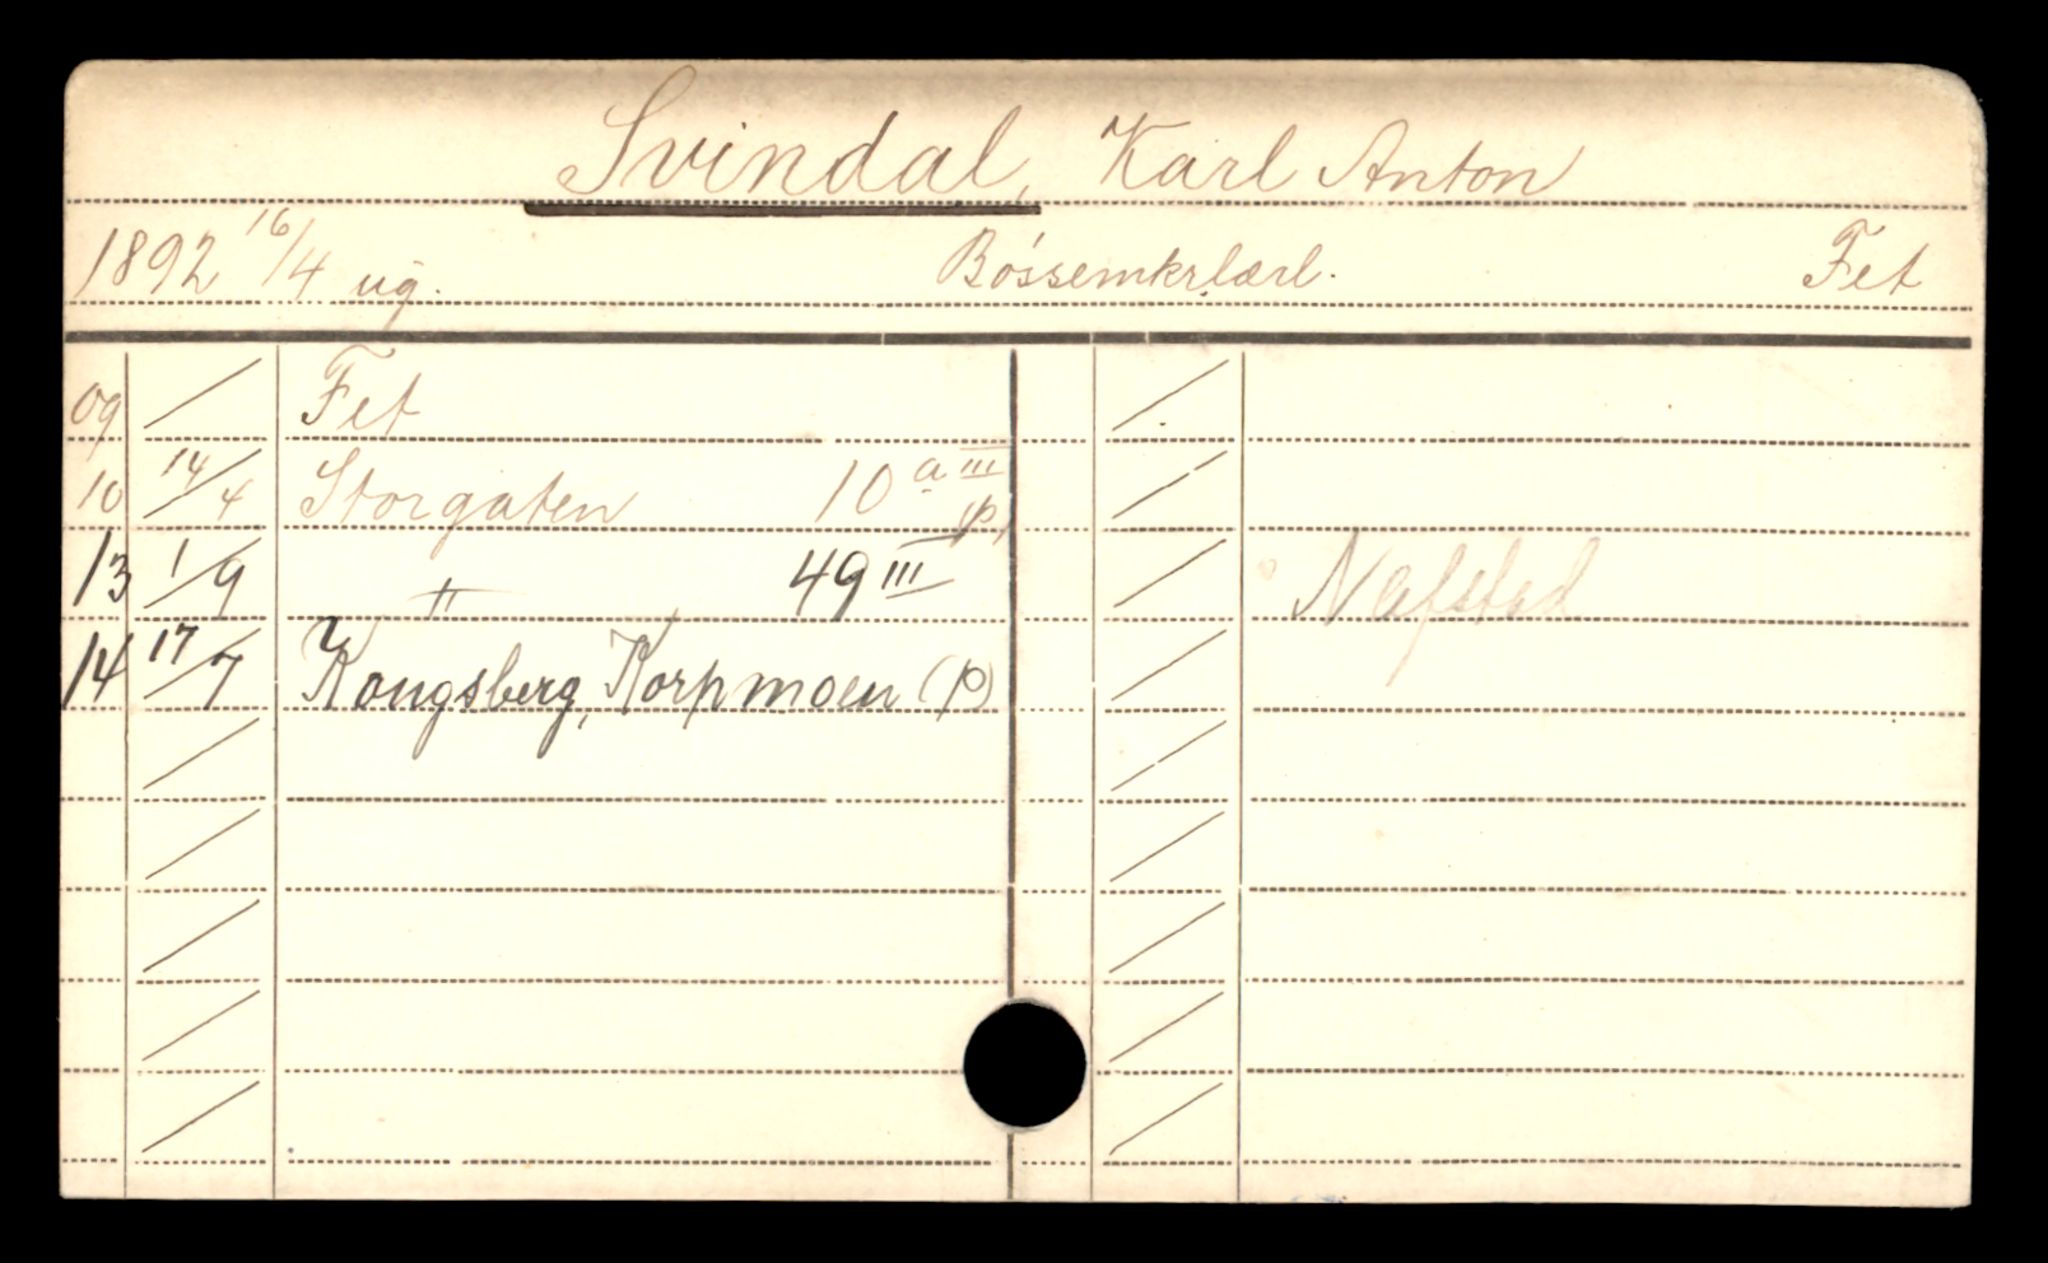 Svindal, Karl Anton
1892 16/4 ug. Bøssemkrlærl. Fet
09 / Fet
10 14/4 Storgaten 10 a III (p)
13 1/9 " 49 III
14 17/7 Kongsberg, Korpmoen (p)
Nafstad